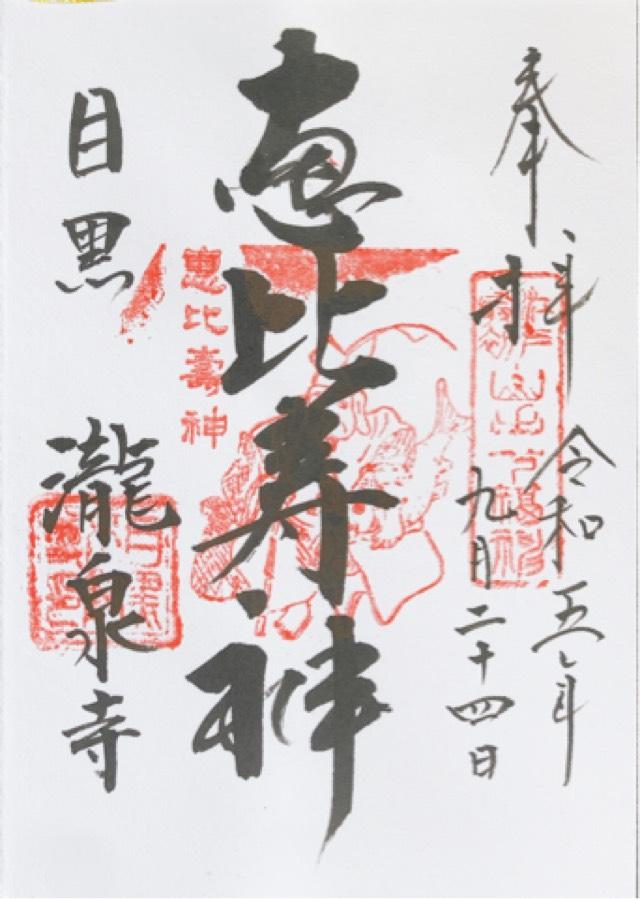 奉拝
令和五年
九月二十四日
恵比寿神
恵比壽神
目黒
瀧泉寺